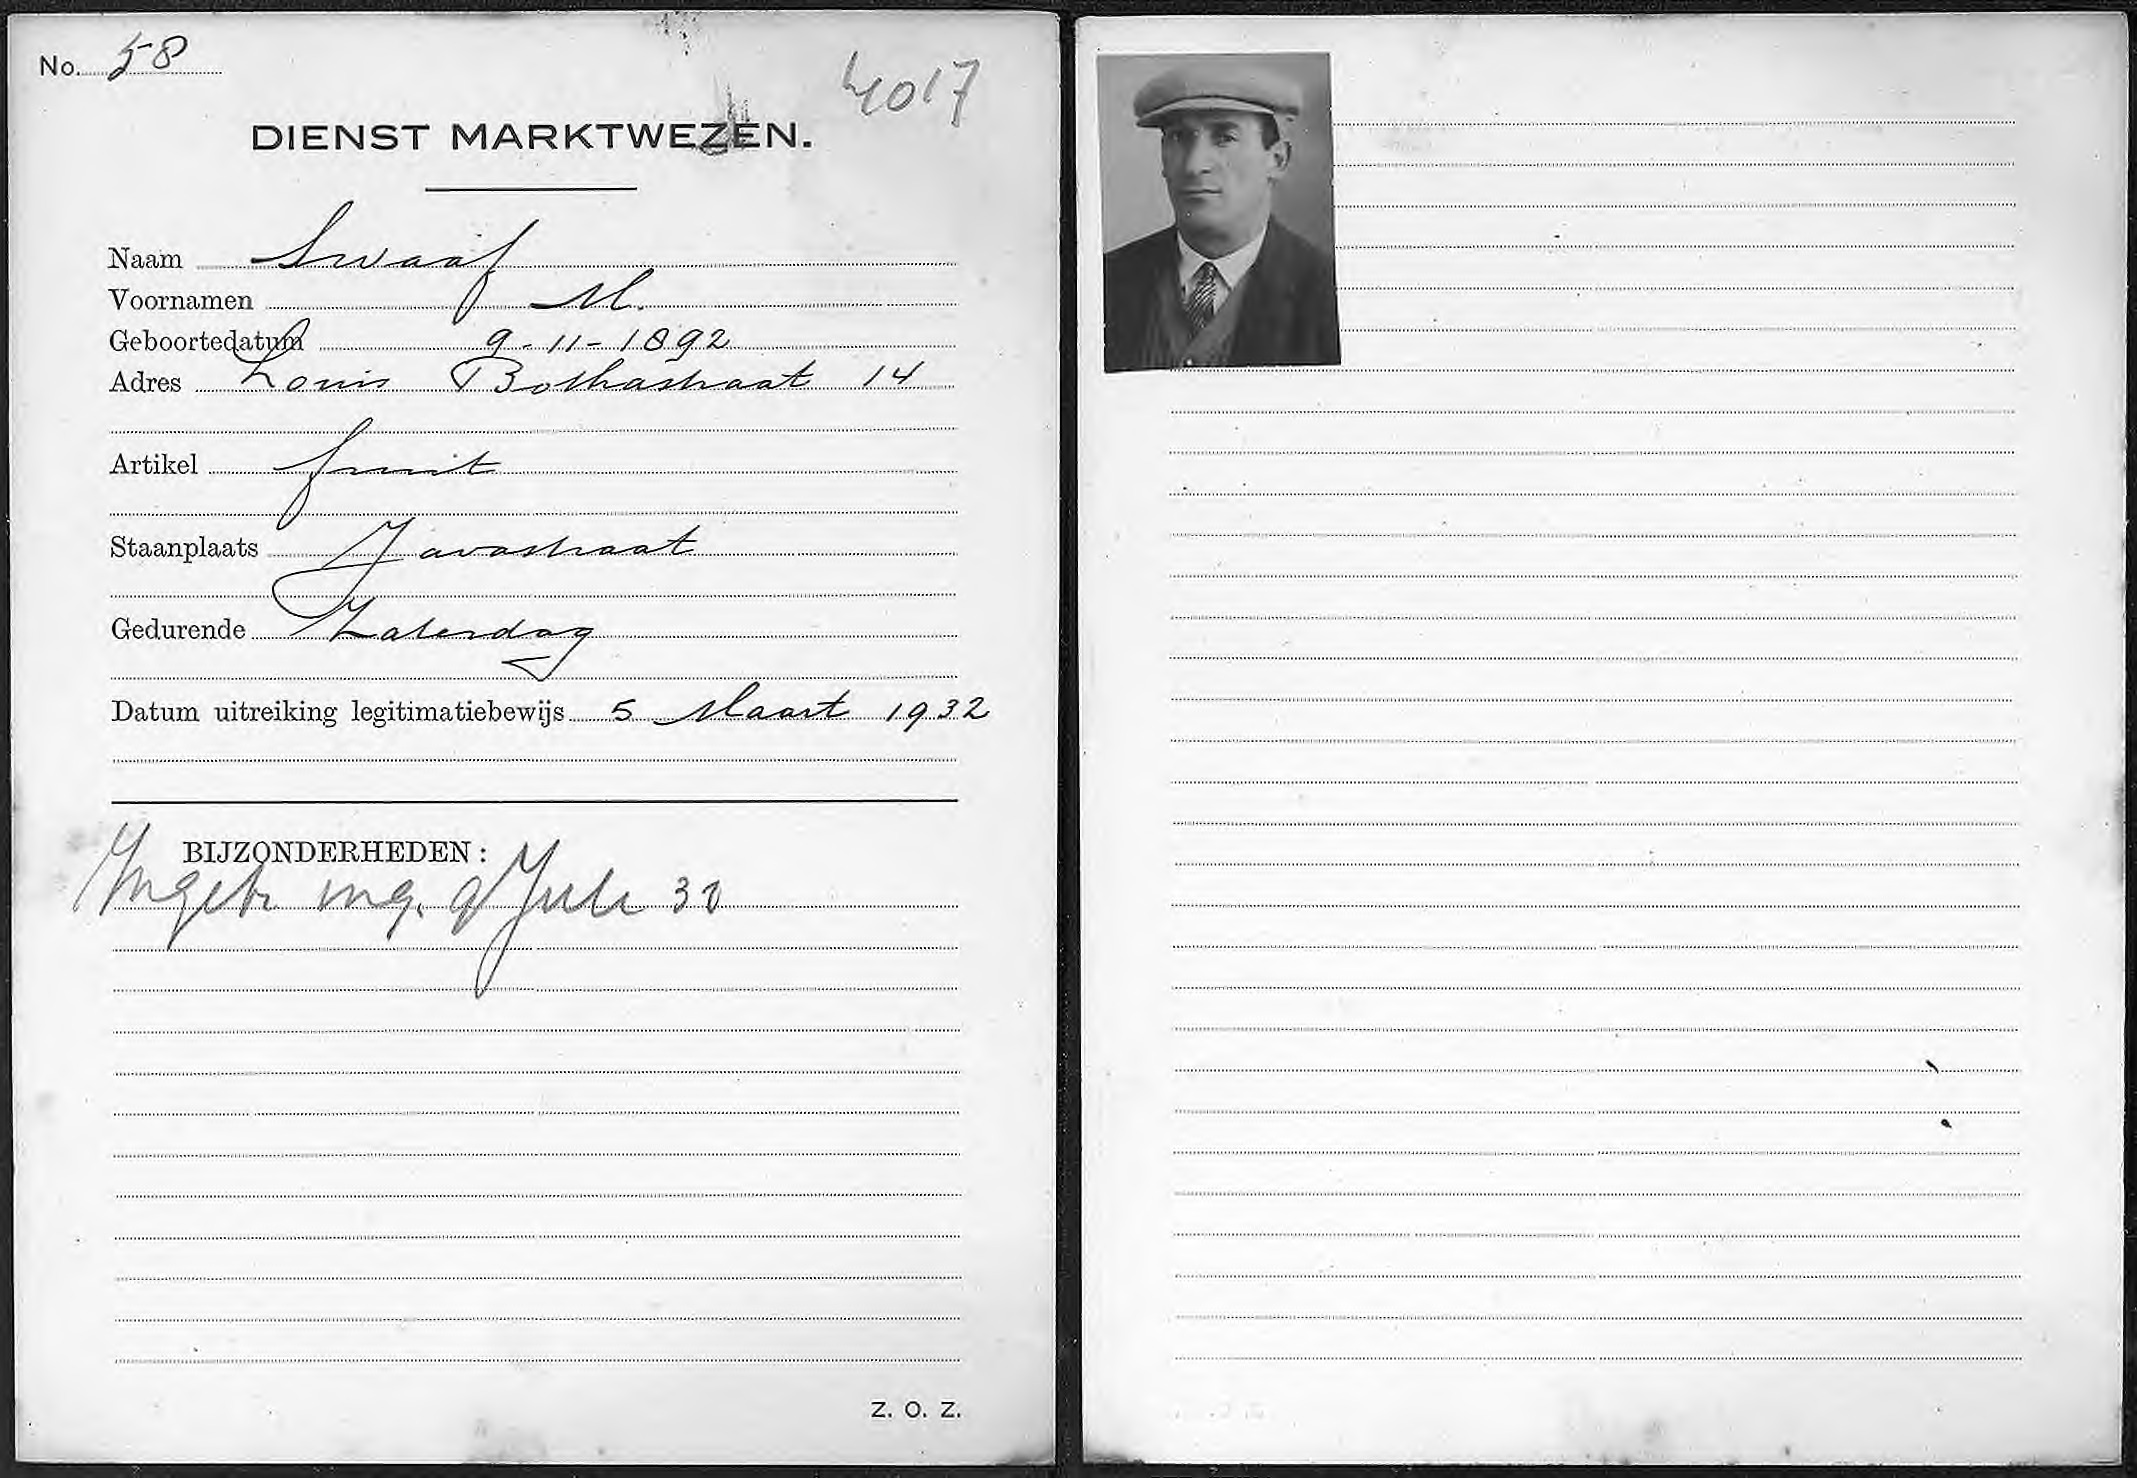 No. 58
4017
DIENST MARKTWEZEN.
Naam Swaaf
Voornamen M.
Geboortedatum 9-11-1892
Adres Louis Bothastraat 14
Artikel fruit
Staanplaats Javastraat
Gedurende Zaterdag
Datum uitreiking legitimatiebewijs 5 Maart 1932
BIJZONDERHEDEN:
Ingetr ing. 9 Juli
Z. O. Z.